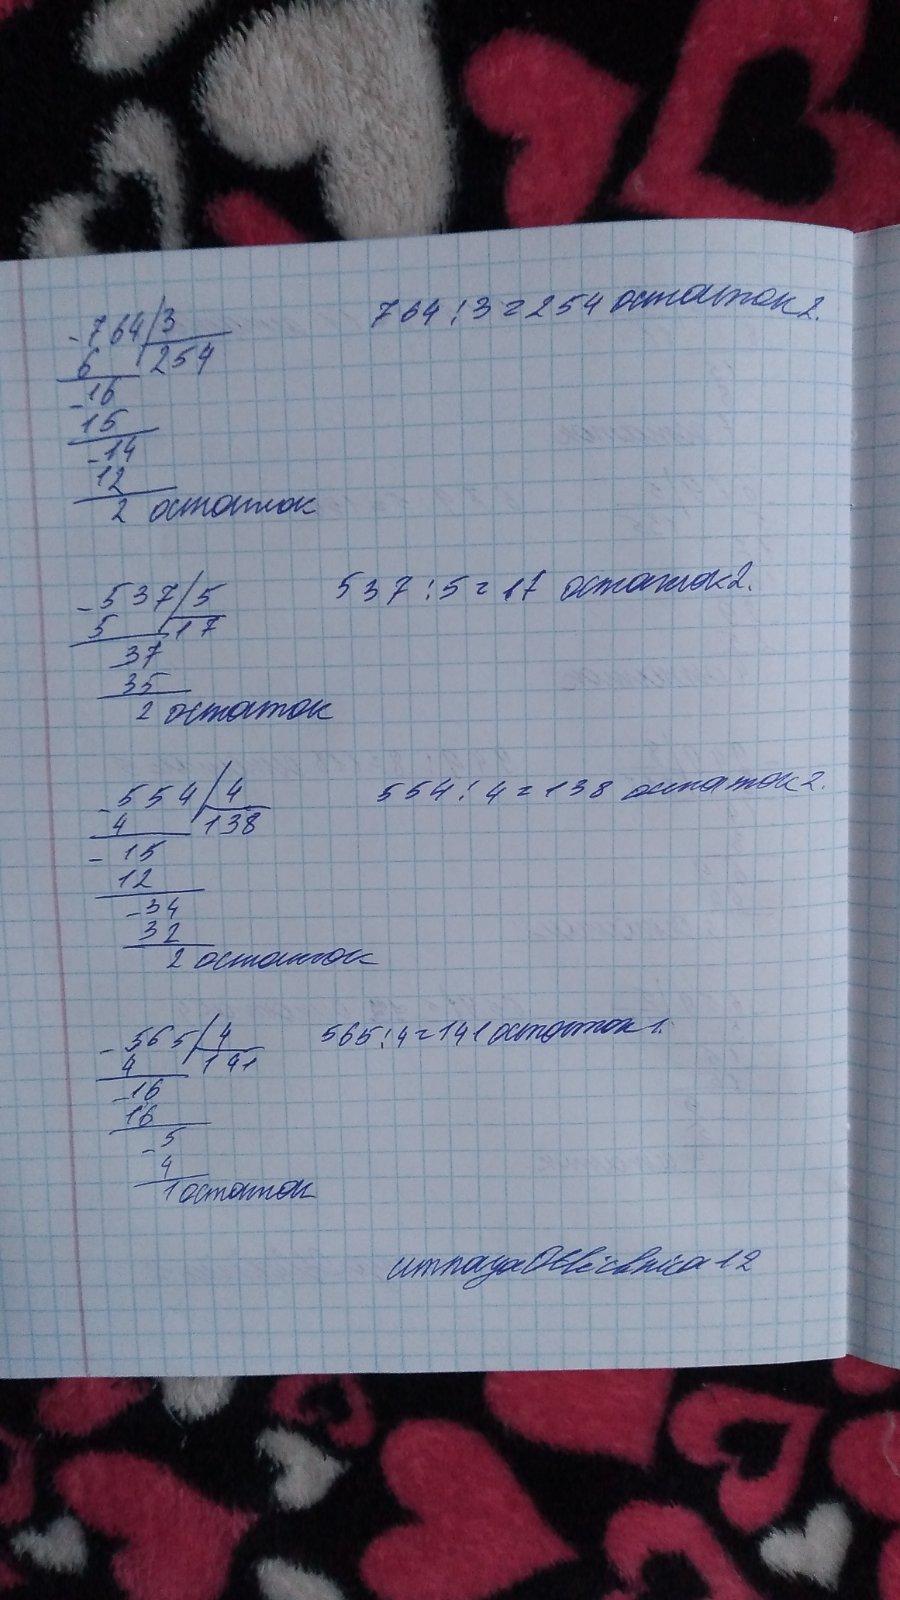 -764 3
6 254
-16
15
-14
12
2 остаток
764:3=254 остаток 2.
-537 5
5 17
37
35
2 остаток
537:5=17 остаток 2.
-554 4
4 138
-15
12
-34
32
2 остаток
554:4=138 остаток 2.
-565 4
4 141
-16
16
-5
4
1 остаток
565:4=141 остаток 1.
umnayaOtlichnica12